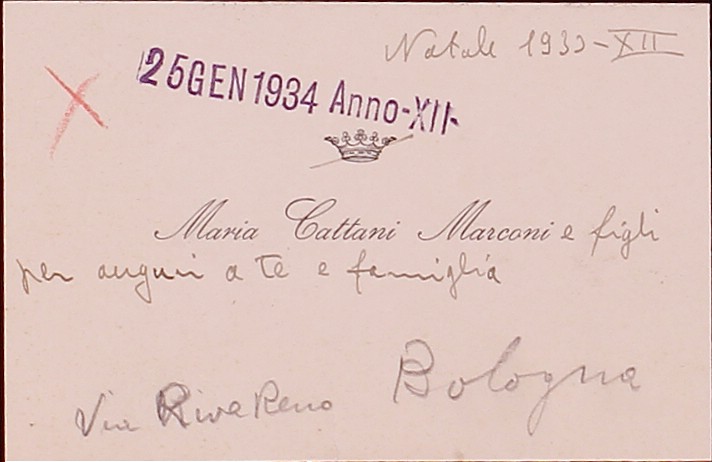 Natale 1933-XII
25GEN1934 Anno-XII
Maria Cattani Marconi e figli
per auguri a te e famiglia
Bologna
Via Riva Reno